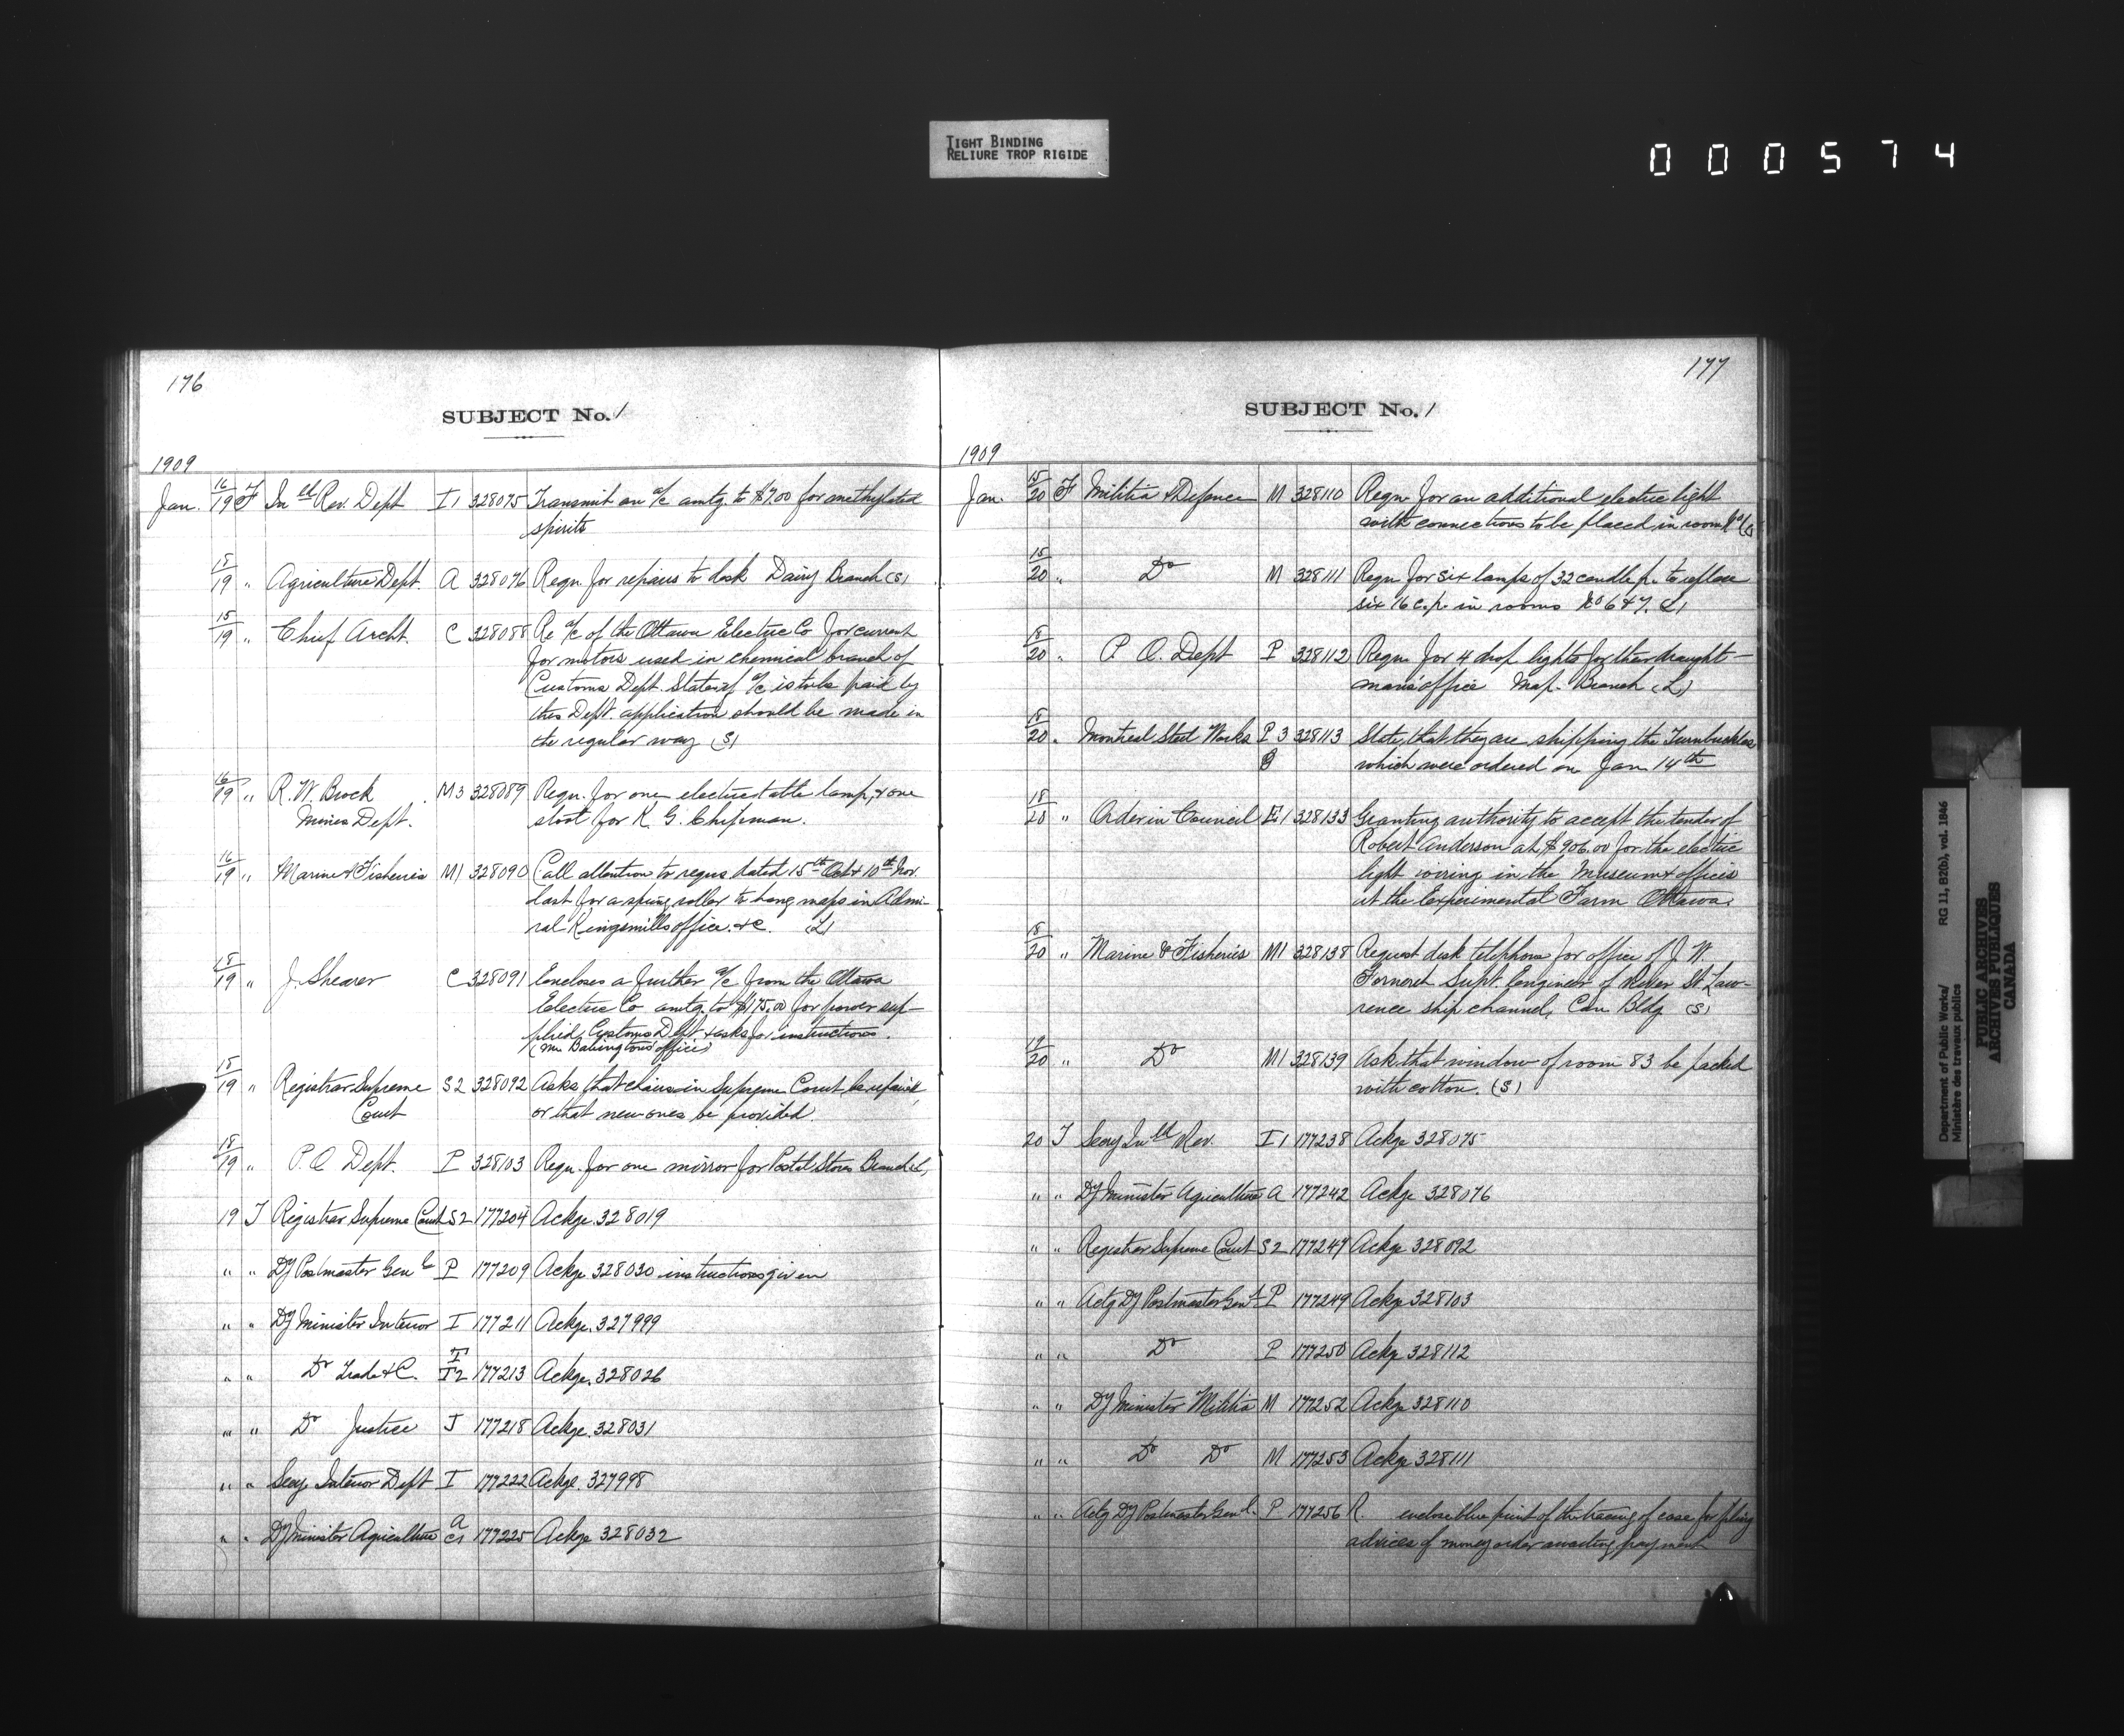 TIGHT BINDING
RELIURE TROP RIGIDE
000574
176
SUBJECT No. 1
1909
Jan. 16/19 F Inld Rev. Dept I1 328075 Transmit an a/c amtg. to $7.00 for methylated
spirits
18/19 " Agriculture Dept. A 328076 Requ. for repairs to desk Dairy Branch (S)
15/19 " Chief Archt. C 328088 Re a/c of the Ottawa Electric Co for current
for motors used in chemical branch of
Customs Dept. States if a/c is to be paid by
this Dept. application should be made in
the regular way (S)
16/19 " R. W. Brock M3 328089 Requ. for one electric table lamp, & one
Mines Dept. stool for K. G. Chipman.
16/19 " Marine & Fisheries M1 328090 Call attention to requs dated 15th Oct & 10th Nov.
last for a spring roller to hang maps in Admi-
ral Kingsmills office. &c. (L)
18/19 " J. Shearer C 328091 Encloses a further a/c from the Ottawa
Electric Co amtg. to $175.00 for power sup-
plied Customs Dept & asks for instructions.
(Mr Babingtons office)
18/19 " Registrar Supreme S2 328092 Asks that chairs in Supreme Court be repaired
Court or that new ones be provided.
18/19 " P.O Dept. P 328103 Requ. for one mirror for Postal Stores Branch L,
19 T Registrar Supreme Court S2 177204 Ackge. 328019
" " Dy Postmaster Genl P 177209 Ackge 328030 instructions given
" " Dy Minister Interior I 177211 Ackge. 327999
" " Do Trade & C. T T2 177213 Ackge. 328026
" " Do Justice J 177218 Ackge. 328031
" " Secy Interior Dept I 177222 Ackge. 327998
" " Dy Minister Agriculture A C1 177225 Ackge 328032
177
SUBJECT No. 1
1909
Jan. 15/20 F Militia & Defence M 328110 Requ for an additional electric light
with connections to be placed in room
15/20 " Do M 328111 Requ for six lamps of 32 candle p. to replace
six 16 c.p. in rooms No 6 & 7. (L)
18/20 " P. O. Dept P 328112 Requ for 4 drop lights for their draught-
mans' office Map. Branch (L)
18/20 " Montreal Steel Works P 3 328113 State, that they are shipping the Turnbuckles
which were ordered on Jan 14th
18/20 " Order in Council E1 328133 Granting authority to accept the tender of
Robert Anderson at $906.00 for the electric
light wiring in the Museum & offices
at the Experimental Farm Ottawa.
18/20 " Marine & Fisheries M1 328138 Request desk telephone for office of J. W.
Forneret Supt. Engineer of River St. Law-
rence ship channel, Can Bldg (S)
19/20 " Do M1 328139 Ask that window of room 83 be packed
with cotton. (S)
20 T Secy Inld Rev. I1 177238 Ackge 328075
" " Dy Minister Agriculture A 177242 Ackge 328076
" " Registrar Supreme Court S2 177247 Ackge 328092
" " Actg Dy Postmaster Genl P 177249 Ackge 328103
" " Do P 177250 Ackge 328112
" " Dy Minister Militia M 177252 Ackge 328110
" " Do Do M 177253 Ackge 328111
" " Actg Dy Postmaster Genl. P 177256 R. enclose blue print of the tracing of case for filing
advices of money order awaiting payment
Department of Public Works/ RG 11, B2(b), vol. 1846
Ministère des travaux publics
PUBLIC ARCHIVES
ARCHIVES PUBLIQUES
CANADA